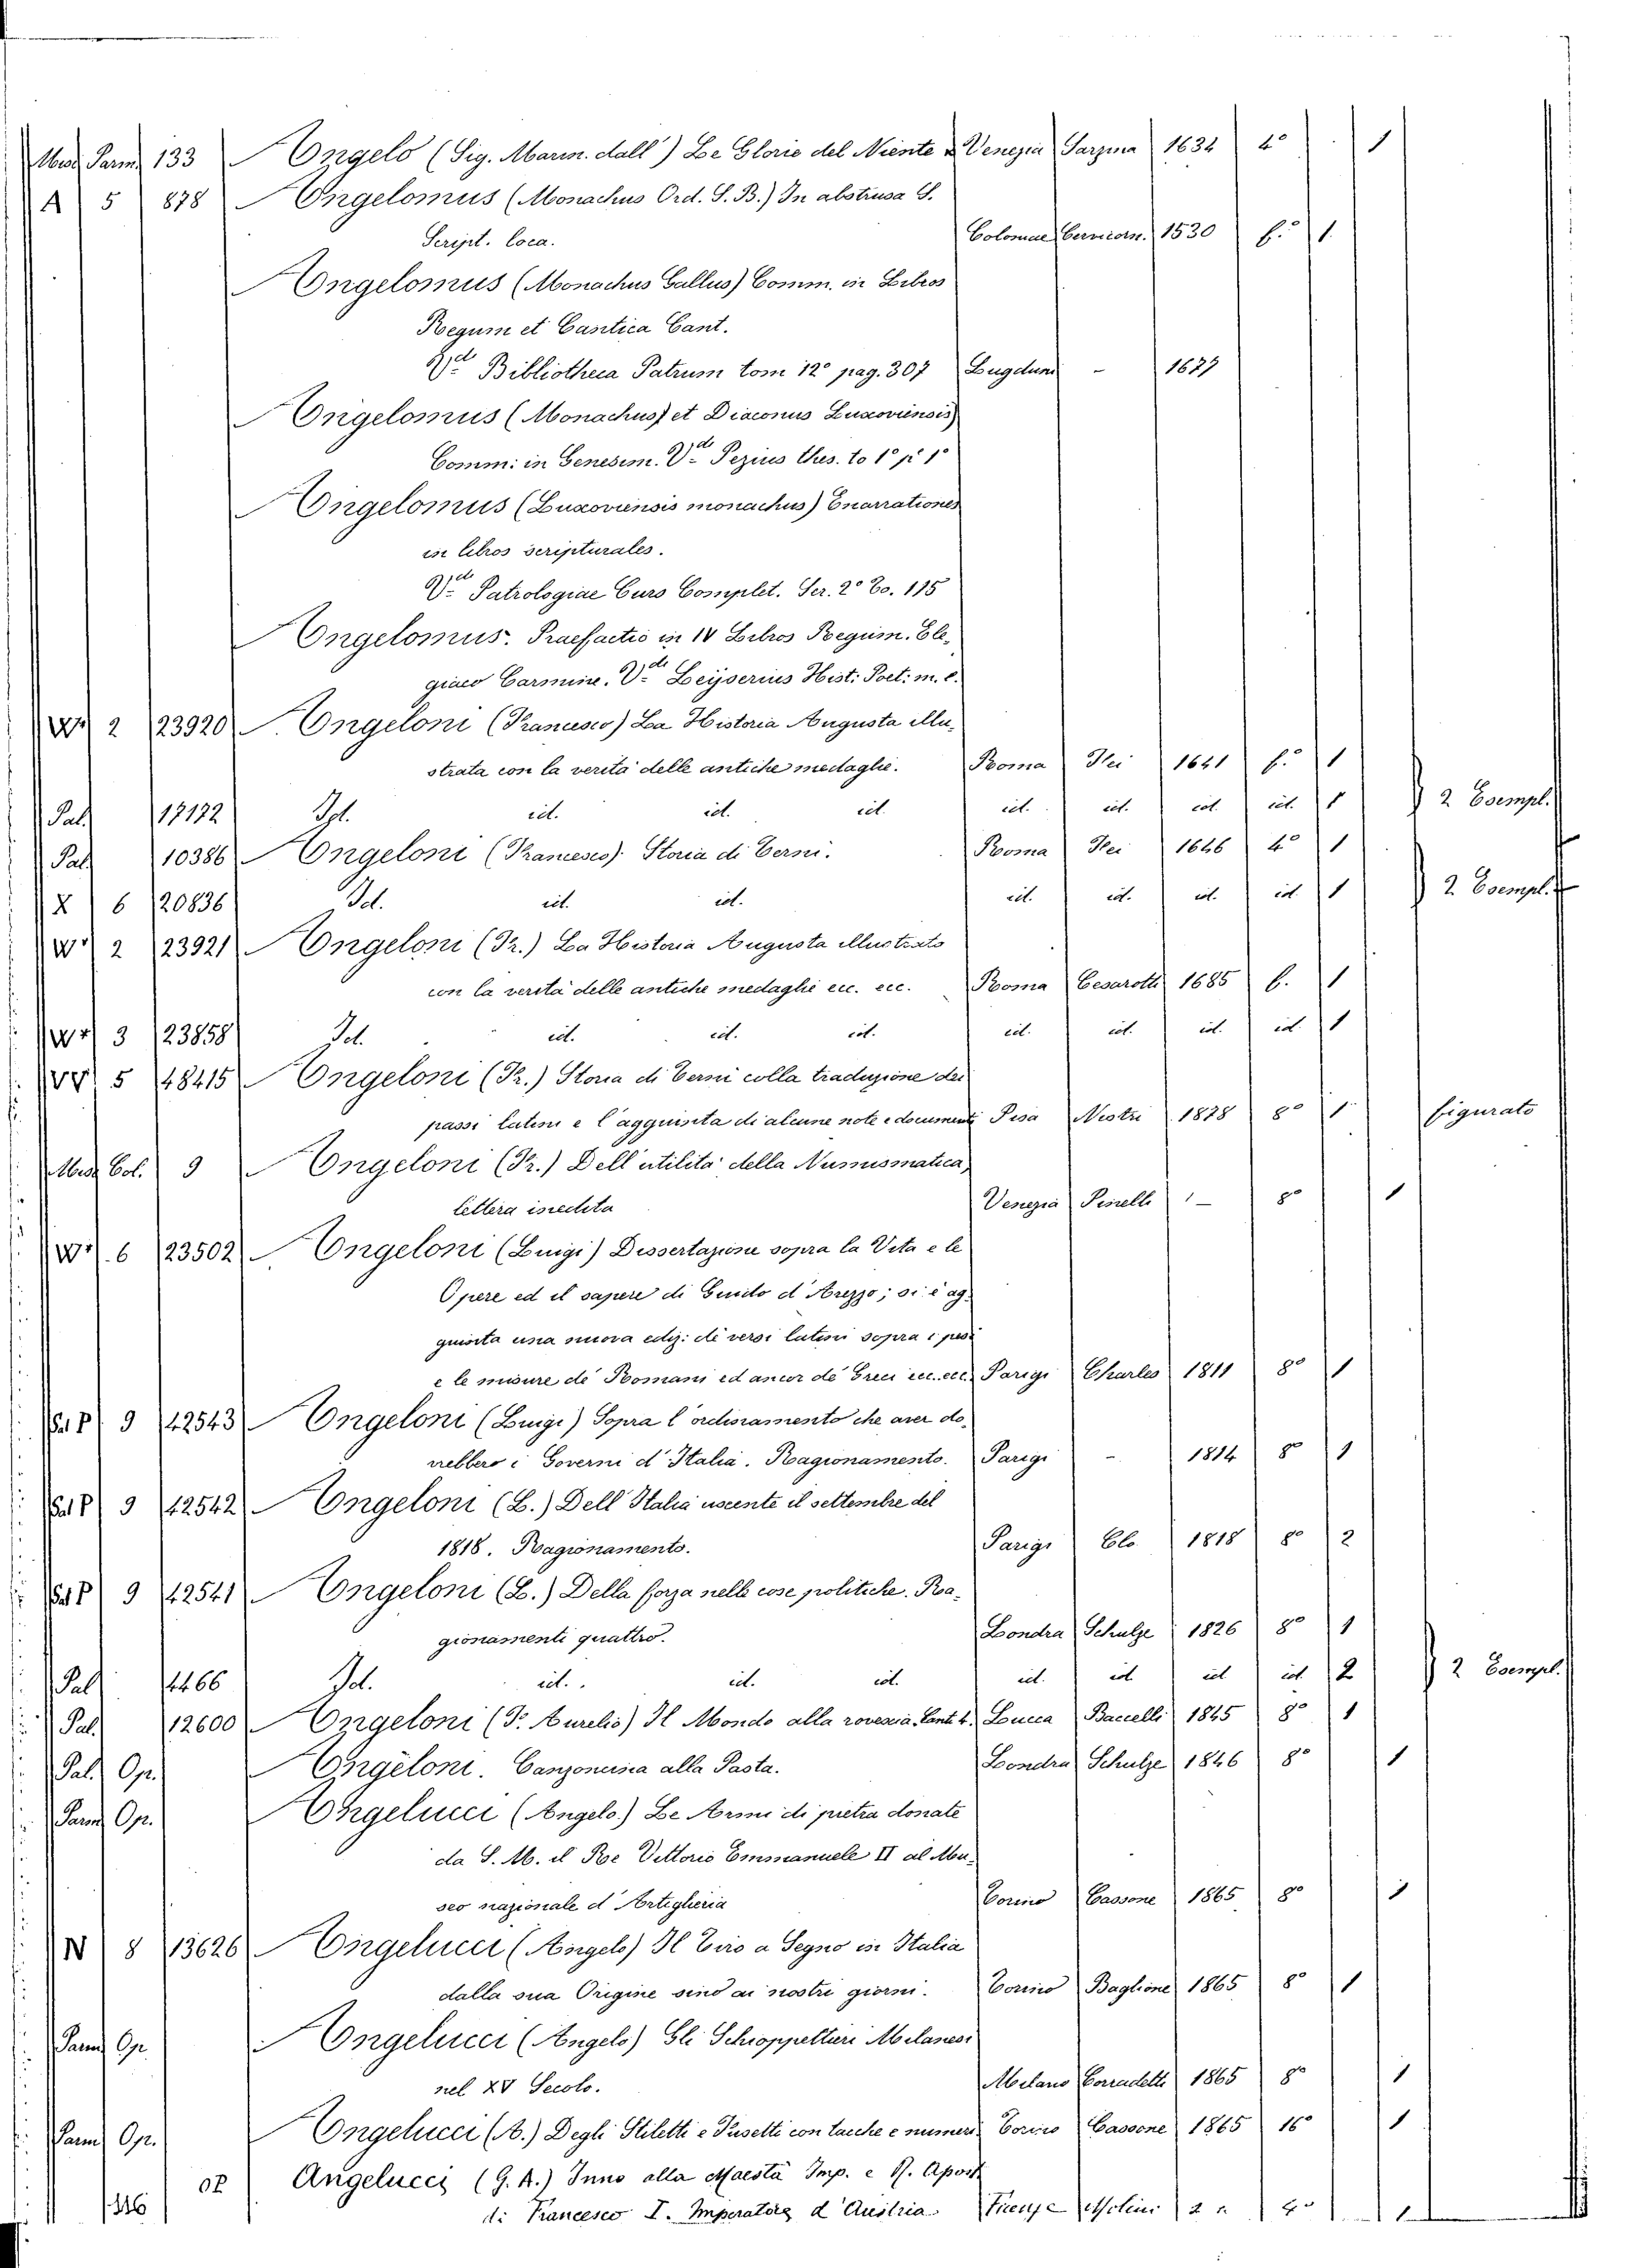 Misc. Parm. 133 Angelo (Sig. Marin. dall') Le Glorie del Niente Venezia Sarzina 1634 4° 1
A 5 878 Angelomus (Monachus Ord. S. B.) In abstrusa S.
Script. loca. Coloniae Cervicorn. 1530 f.° 1.
Angelomus (Monachus Gallus) Comm. in Libros
Regum et Cantica Cant.
Vde Bibliotheca Patrum tom 12° pag. 307 Lugduni - 1677
Angelomus (Monachus) et Diaconus Luxoviensis)
Comm: in Genesim. Vde Pezius thes. to 1° p.e 1°
Angelomus (Luxoviensis monachus) Enarrationes
in libros scripturales.
Vde Patrologiae Curs Complet. Ser. 2° To. 115
Angelomus. Praefactio in IV Libros Regum. Ele-
giaco Carmine. Vde Leyserius Hist: Poet: m. e.
W 2 23920 Angeloni (Francesco) La Historia Augusta illu-
strata con la verità delle antiche medaglie. Roma Fei 1641 f.° 1
Pal. 17172 Id. id. id. id. id. id. id. id. 1 2 Esempl.
Pal. 10386 Angeloni (Francesco) Storia di Terni. Roma Fei 1646 4° 1
X 6 20836 Id. id. id. id. id. id. id. 1 2 Esempl.
W 2 23921 Angeloni (Fr.) La Historia Augusta illustrata
con la verità delle antiche medaglie ecc. ecc. Roma Cesarotti 1685 f. 1
W 3 23858 Id. id. id. id. id. id. id. id. 1
VV 5 48415 Angeloni (Fr.) Storia di Terni colla traduzione dei
passi latini e l'aggiunta di alcune note e documenti Pisa Nistri 1878 8° 1 figurato
Misc. Col. 9 Angeloni (Fr.) Dell'utilità della Numismatica,
lettera inedita Venezia Pinelli - 8° 1
W 6 23502 Angeloni (Luigi) Dissertazione sopra la Vita e le
Opere ed il sapere di Guido d'Arezzo; si è ag-
giunta una nuova ediz: di versi latini sopra i pesi
e le misure de' Romani ed ancor de' Greci ecc. ecc. Parigi Charles 1811 8° 1
Sal P 9 42543 Angeloni (Luigi) Sopra l'ordinamento che aver do-
vrebbero i Governi d'Italia. Ragionamento. Parigi - 1814 8° 1
Sal P 9 42542 Angeloni (L.) Dell'Italia uscente il settembre del
1818. Ragionamento. Parigi Clo. 1818 8° 2
Sal P 9 42541 Angeloni (L.) Della forza nelle cose politiche. Ra-
gionamenti quattro. Londra Schulze 1826 8° 1
Pal. 4466 Id. id. id. id. id. id. id. id. 2 2 Esempl.
Pal. 12600 Angeloni (P. Aurelio) Il Mondo alla rovescia. Canti 4. Lucca Baccelli 1845 8° 1
Pal. Op. Angeloni. Canzoncina alla Pasta. Londra Schulze 1846 8° 1
Parm. Op. Angelucci (Angelo) Le Armi di pietra donate
da S. M. il Re Vittorio Emmanuele II al Mu-
seo nazionale d'Artiglieria Torino Cassone 1865 8° 1
N 8 13626 Angelucci (Angelo) Il Tiro a Segno in Italia
dalla sua Origine sino ai nostri giorni. Torino Baglione 1865 8° 1
Parm. Op. Angelucci (Angelo) Gli Schioppettieri Milanesi
nel XV Secolo. Milano Corradetti 1865 8° 1
Parm. Op. Angelucci (A.) Degli Stiletti e Fusetti con tacche e numeri Torino Cassone 1865 16° 1
Angelucci (G. A.) Inno alla Maestà Imp. e R. Apost
146 di Francesco I. Imperatore d'Austria Firenze Molini 4° 1